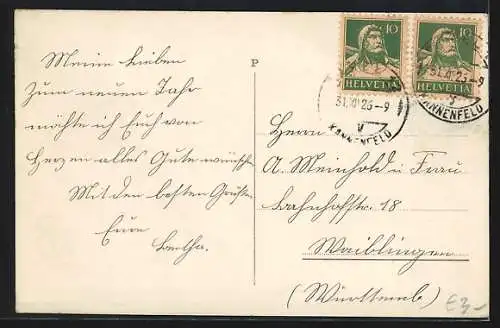 Meine Lieben
Zum neuen Jahr
möchte ich Euch von
Herzen alles Gute wünschen
Mit den besten Grüßen
Eure
Bertha.
P
10
HELVETIA
10
HELVETIA
31.XII.25-9
V
KANNENFELD
31.XII.25-9
V
KANNENFELD
Herrn
A. Meinhold u. Frau
Bahnhofstr. 18
Waiblingen
(Württemb)
€3,-